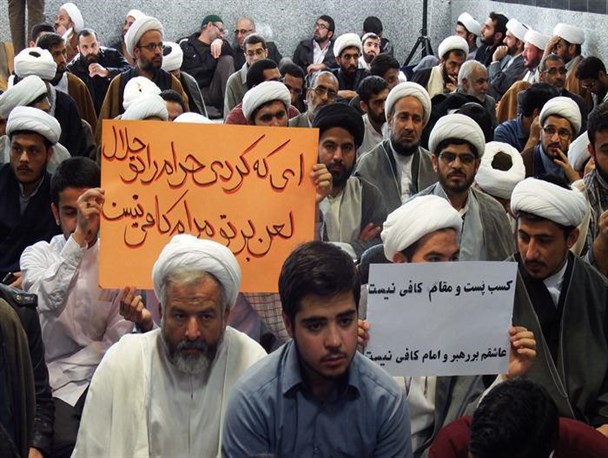 ای که کردی حرام را تو حلال
لعن بر تو مدام کافی نیست
کسب پست و مقام کافی نیست
عاشقم بر رهبر و امام کافی نیست